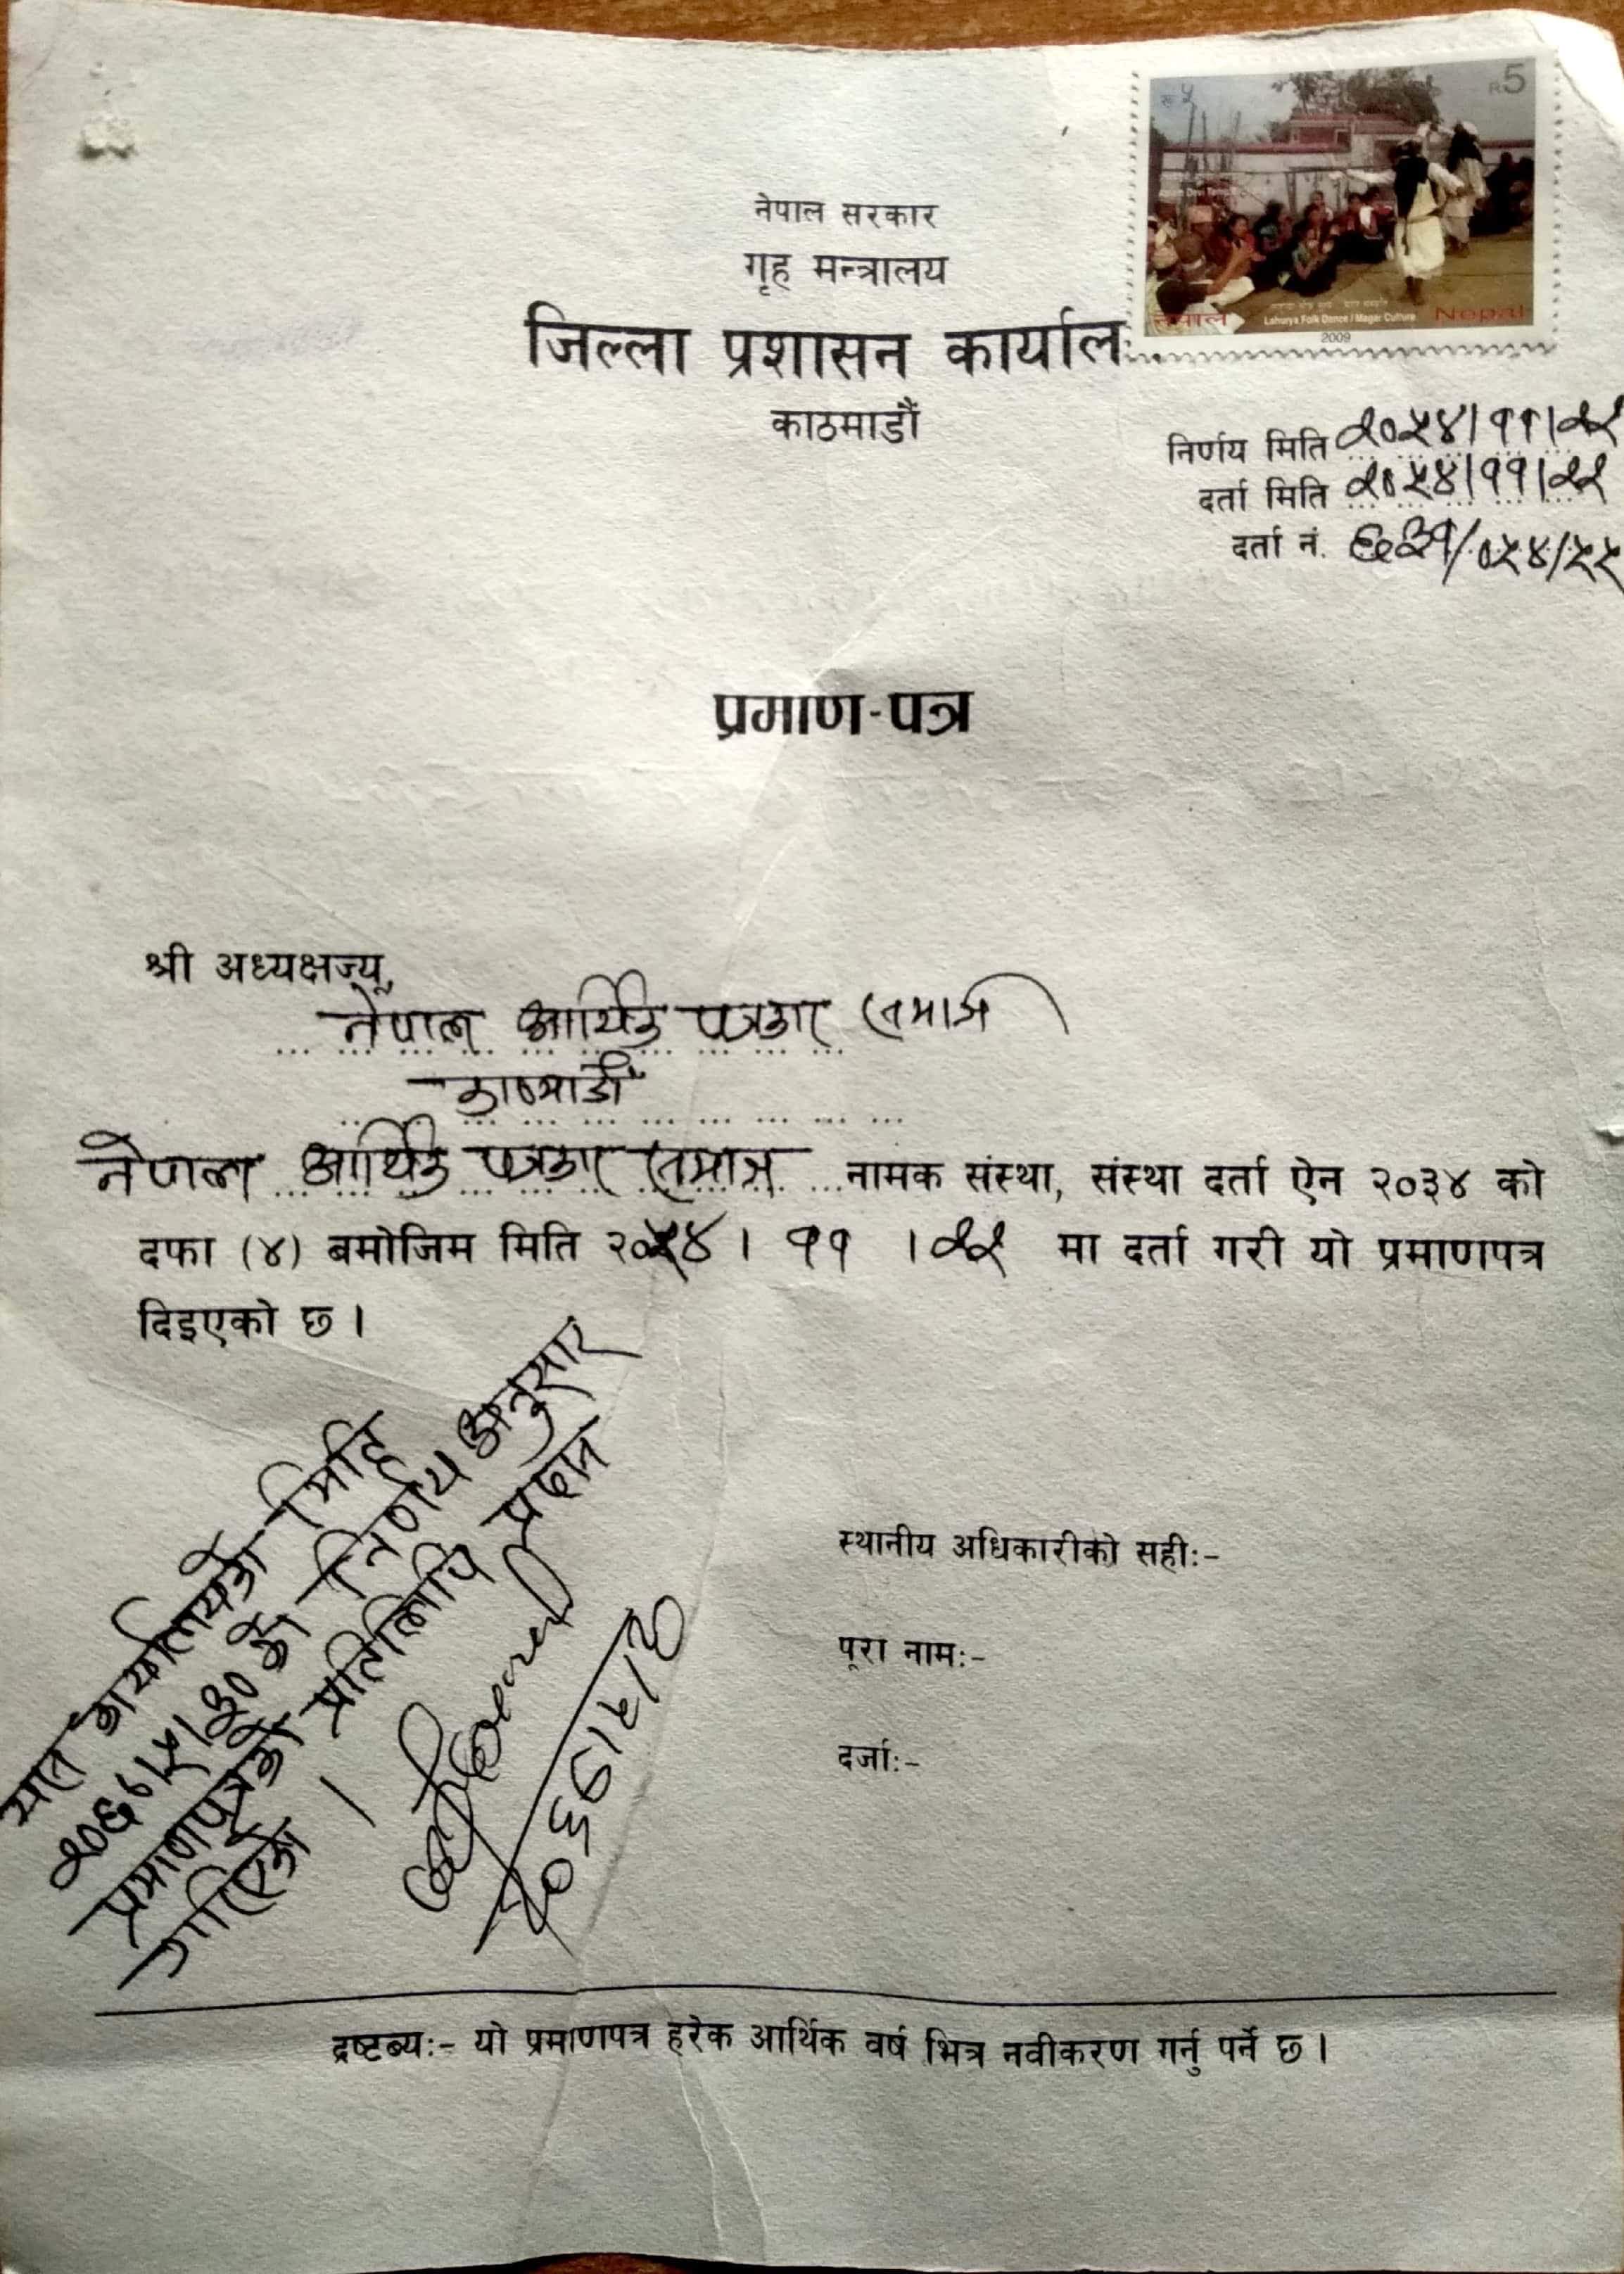 रू ५
R5
नेपाल
Lahurya Folk Dance / Magar Culture
Nepal
2009
नेपाल सरकार
गृह मन्त्रालय
जिल्ला प्रशासन कार्याल
काठमाडौं
निर्णय मिति २०५४।११।२२
दर्ता मिति २०५४।११।२२
दर्ता नं. ६३१/०५४/५५
प्रमाण-पत्र
श्री अध्यक्षज्यू,
नेपाल आर्थिक पत्रकार समाज
काठमाडौं
नेपाल आर्थिक पत्रकार समाज नामक संस्था, संस्था दर्ता ऐन २०३४ को
दफा (४) बमोजिम मिति २०५४। ११ ।२२ मा दर्ता गरी यो प्रमाणपत्र
दिइएको छ ।
यस कार्यालयको मिति
२०६७।५।३० को निर्णय अनुसार
प्रमाणपत्रको प्रतिलिपि प्रदान
गरिएको ।
स्थानीय अधिकारीको सही:-
पूरा नाम:-
दर्जा:-
द्रष्टब्य:- यो प्रमाणपत्र हरेक आर्थिक वर्ष भित्र नवीकरण गर्नु पर्ने छ ।